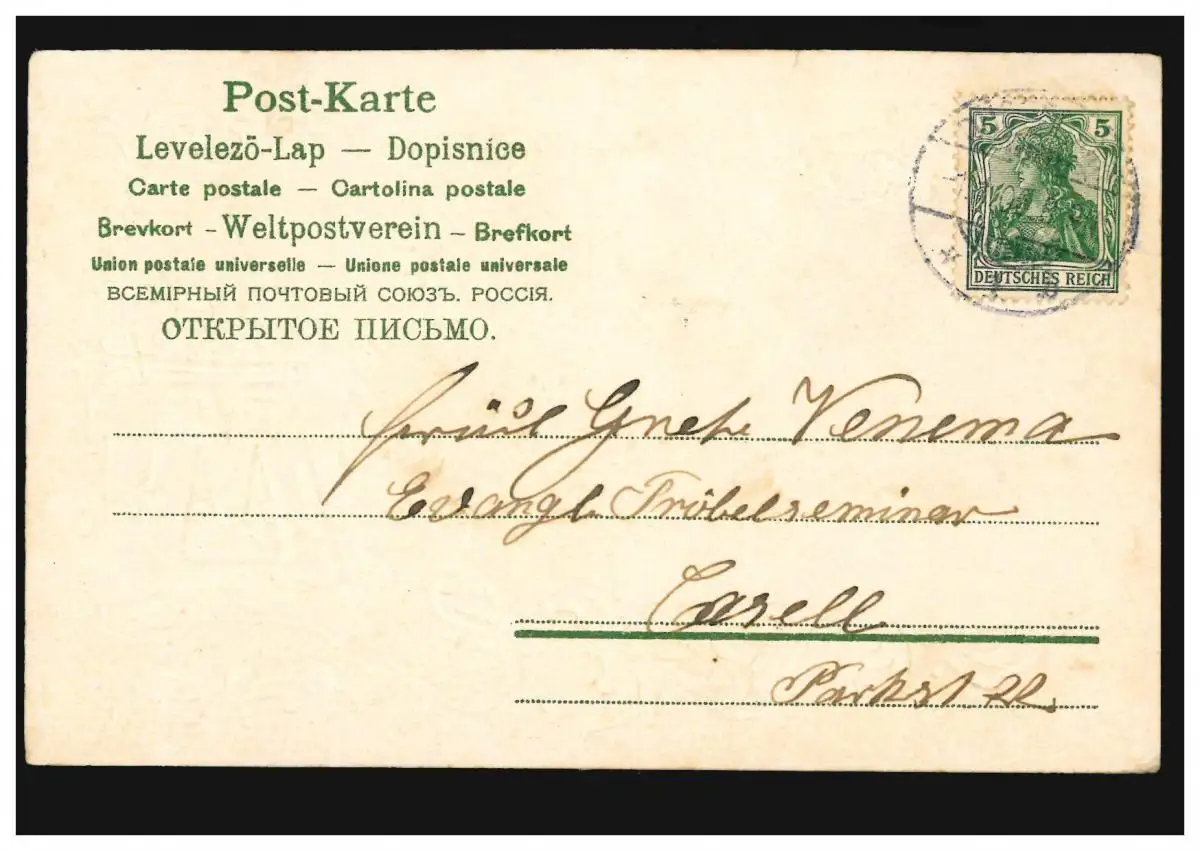 Post-Karte
Levelezö-Lap — Dopisnice
Carte postale — Cartolina postale
Brevkort – Weltpostverein – Brefkort
Union postale universelle — Unione postale universale
ВСЕМІРНЫЙ ПОЧТОВЫЙ СОЮЗЪ. РОССІЯ.
ОТКРЫТОЕ ПИСЬМО.
5 5
DEUTSCHES REICH
Venema
Evangl. Fröbelseminar
Casell
Parkst 22.